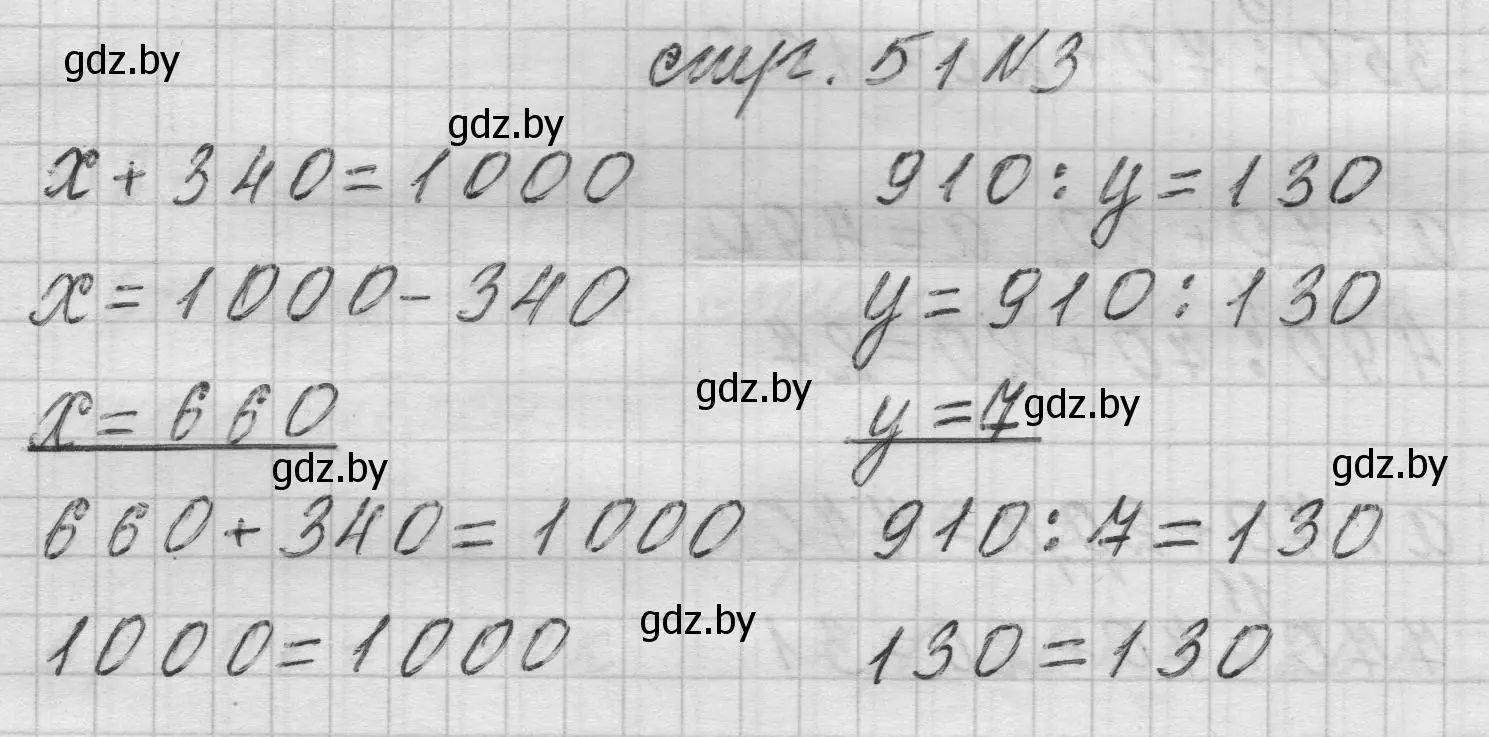 gdz.by
стр. 51 №3
gdz.by
x + 340 = 1000
910 : y = 130
x = 1000 - 340
y = 910 : 130
gdz.by
x = 660
y = 7
gdz.by
gdz.by
gdz.by
660 + 340 = 1000
910 : 7 = 130
gdz.by
1000 = 1000
130 = 130